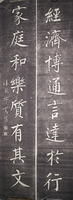 經濟博通言達於行
家庭和樂質有其文